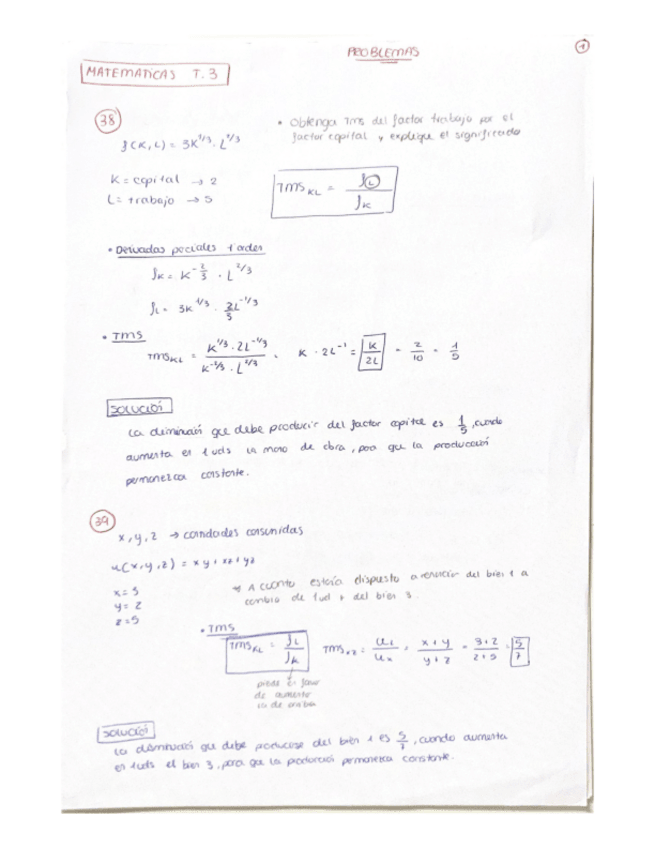 PROBLEMAS
1
MATEMATICAS T.3
38
• Obtenga TMS del factor trabajo por el
factor capital y explique el significado
f(K,L) = 3K^1/3 · L^2/3
K = capital → 2
L = trabajo → 5
TMS KL = fL / fK
• Derivadas parciales 1 orden
fK = K^-2/3 · L^2/3
fL = 3K^1/3 · 2L^-1/3 / 3
• TMS
TMS KL = K^1/3 · 2L^-1/3 / K^-2/3 · L^2/3 = K · 2L^-1 = K / 2L = 2/10 = 1/5
SOLUCIÓN
La disminución que debe producir del factor capital es 1/5, cuando
aumenta en 1 uds la mano de obra, para que la producción
permanezca constante.
39
x, y, z → cantidades consumidas
u(x,y,z) = xy + xz + yz
x = 3
y = 2
z = 5
A cuanto estaría dispuesto a renunciar del bien 1 a
cambio de 1 ud + del bien 3.
• TMS
TMS KL = fL / fK
TMS xz = uz / ux = x+y / y+z = 3+2 / 2+5 = 5/7
de aumento
SOLUCIÓN
La disminución que debe producirse del bien 1 es 5/7, cuando aumenta
en 1 uds el bien 3, para que la producción permanezca constante.